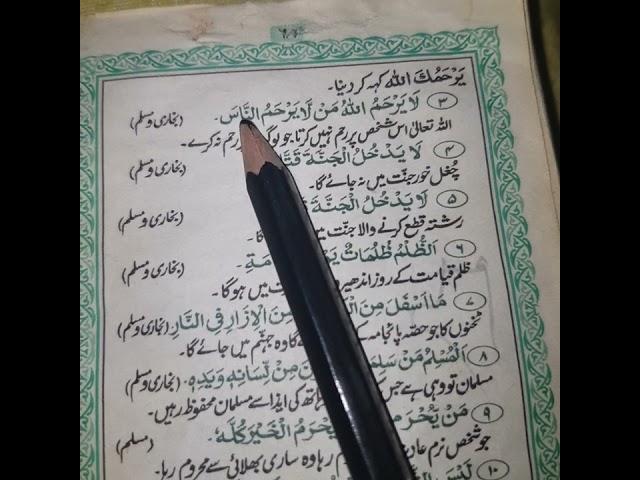 یَرْحَمُكَ اللّٰه کہہ کر دینا۔
۳ لَا یَرْحَمُ اللّٰهُ مَنْ لَّا یَرْحَمُ النَّاسَ۔ (بخاری و مسلم)
اللہ تعالیٰ اس شخص پر رحم نہیں کرتا جو رحم نہ کرے۔
۴ لَا یَدْخُلُ الْجَنَّةَ (بخاری و مسلم)
چغل خور جنّت میں نہ جائے گا۔
۵ لَا یَدْخُلُ الْجَنَّةَ (بخاری و مسلم)
رشتہ قطع کرنے والا جنّت میں گا۔
۶ اَلظُّلْمُ ظُلُمَاتٌ (بخاری و مسلم)
ظلم قیامت کے روز میں ہوگا۔
۷ مَا اَسْفَلَ مِنَ مِنَ الْاِزَارِ فِي النَّارِ (بخاری و مسلم)
ٹخنوں کا جو حصّہ پائجامہ گا وہ جہنّم میں جائے گا۔
۸ اَلْمُسْلِمُ مَنْ سَلِمَ مِنْ لِّسَانِهٖ وَیَدِهٖ۔ (بخاری و مسلم)
مسلمان تو وہی ہے جس کی ایذا سے مسلمان محفوظ رہیں۔
۹ مَنْ یُّحْرَمِ یُحْرَمُ الْخَیْرَ كُلَّهٗ۔ (مسلم)
جو شخص نرم رہا وہ ساری بھلائی سے محروم رہا۔
۱۰ لَیْسَ